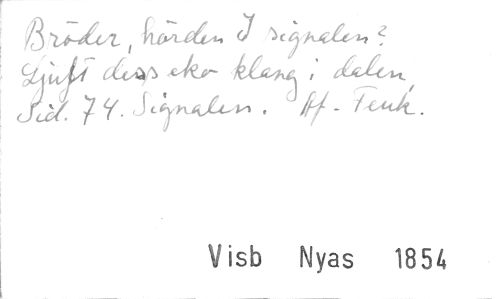 Bröder, hörden I signalen?
Ljuft dess eko klang i dalen,
Sid. 74. Signalen. Af -
Visb Nyas 1854